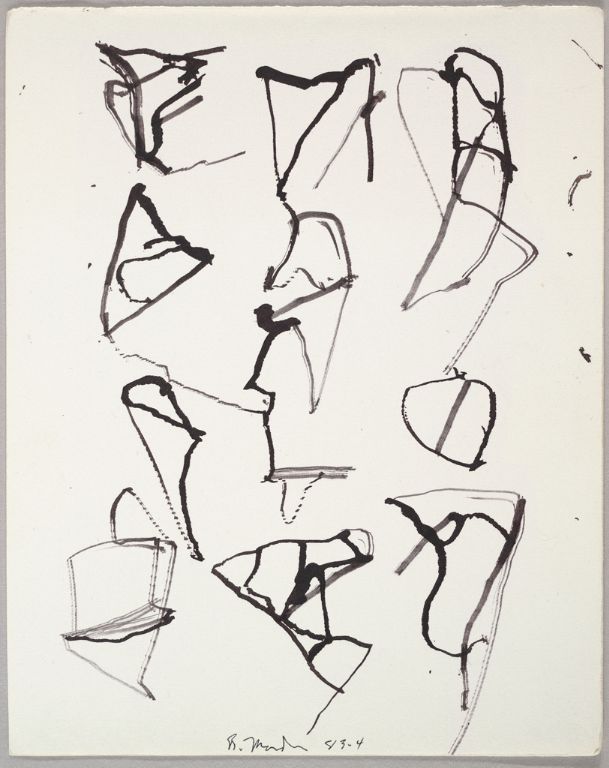 B. Marden 83-4